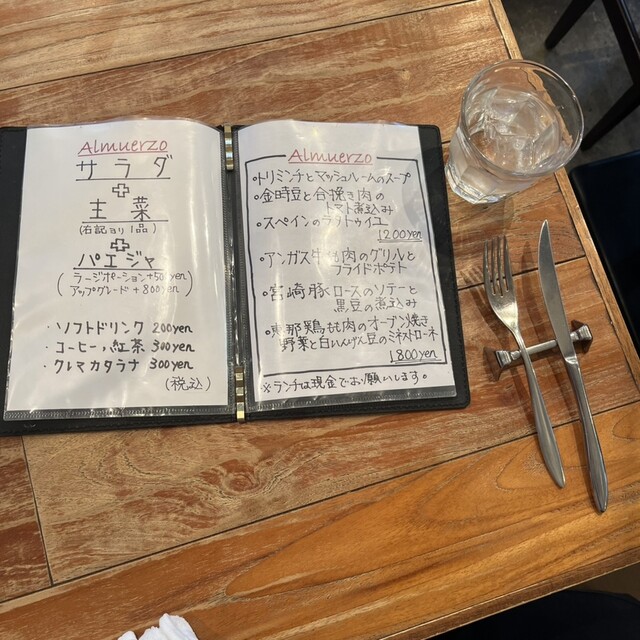 Almuerzo
サラダ
+
主菜
(右記より1品)
+
パエジャ
(ラージポーション+500yen
アップグレード+800yen)
・ソフトドリンク 200yen
・コーヒー、紅茶 300yen
・クレマカタラナ 300yen
(税込)
Almuerzo
・トリミンチとマッシュルームのスープ
・金時豆と合挽き肉の
トマト煮込み
・スペインのラタトゥイユ
1200yen
・アンガス牛もも肉のグリルと
フライドポテト
・宮崎豚ロースのソテーと
黒豆の煮込み
・恵那鶏もも肉のオーブン焼き
野菜と白いんげん豆のミネストローネ
1800yen
※ランチは現金でお願いします。